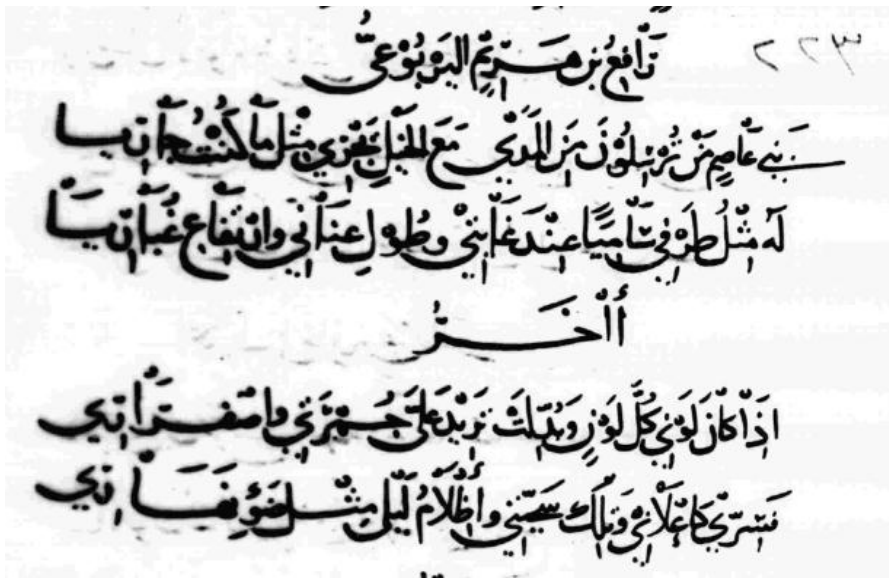 ٢٢٣
رَافِعُ بْنُ هُرَيْمٍ الْيَرْبُوعِيُّ
بَنِي عَاصِمٍ مَنْ تُرْسِلُونَ مِنَ الْمَدَي مَعَ الْخَيْلِ يَجْزِي مِثْلَ مَا كُنْتُ جَازِيَا
لَهُ مِثْلُ طَرْفِي سَامِيًا عِنْدَ غَايَتِي وَطُولِ عِنَانِي وَارْتِفَاعِ غُبَارِيَا
أَاخَرُ
اِذَا كَانَ لَوْنِي كُلَّ لَوْنٍ وَبُدِّلَتْ عَلَيَّ حُمْرَتِي وَاصْفِرَارِي
فَسَرِّي كَاِعْلَانِي وَتِلْكَ سَجِيَّتِي وَأَظْلَامُ لَيْلِي مِثْلُ ضَوْءِ نَهَارِي